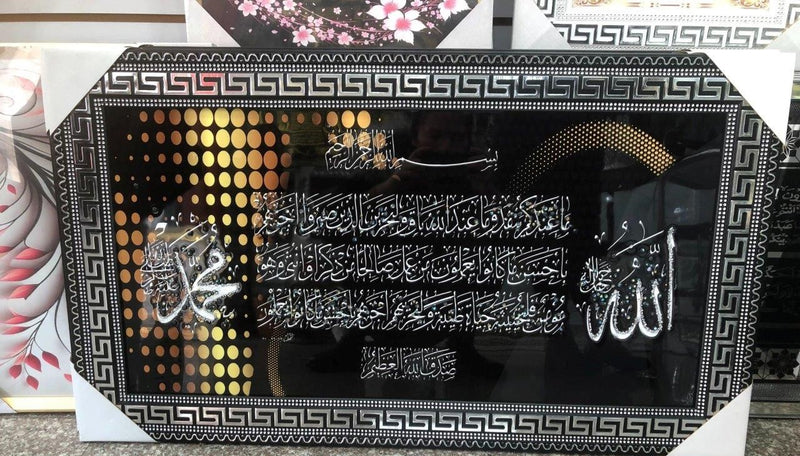 بسم الله الرحمن الرحيم
ما عندكم ينفد وما عند الله باق ولنجزين الذين صبروا أجرهم
بأحسن ما كانوا يعملون من عمل صالحا من ذكر أو أنثى وهو
مؤمن فلنحيينه حياة طيبة ولنجزينهم أجرهم بأحسن ما كانوا يعملون
صدق الله العظيم
الله
جل جلاله
محمد